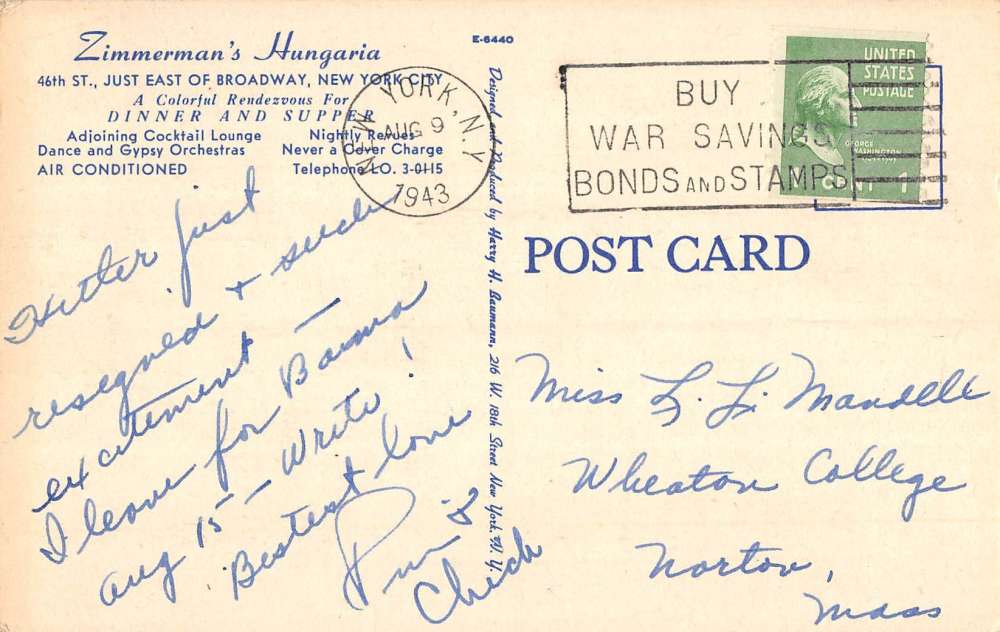 Zimmerman's Hungaria
46th ST., JUST EAST OF BROADWAY, NEW YORK CITY
A Colorful Rendezvous For
DINNER AND SUPPER
Adjoining Cocktail Lounge Nightly Revues
Dance and Gypsy Orchestras Never a Cover Charge
AIR CONDITIONED Telephone LO. 3-0115
E-6440
NEW YORK, N.Y.
AUG 9
1943
BUY
WAR SAVINGS
BONDS AND STAMPS
UNITED
STATES
POSTAGE
GEORGE
WASHINGTON
CENT 1
Designed and Produced by Harry H. Baumann, 216 W. 18th Street New York, N. Y.
POST CARD
Hitler just
resegned & such
excitement —
I leave for Bama
aug 15 — Write!
Bestest love
&
Chick
Miss L. L. Mandell
Wheaton College
Norton,
Mass